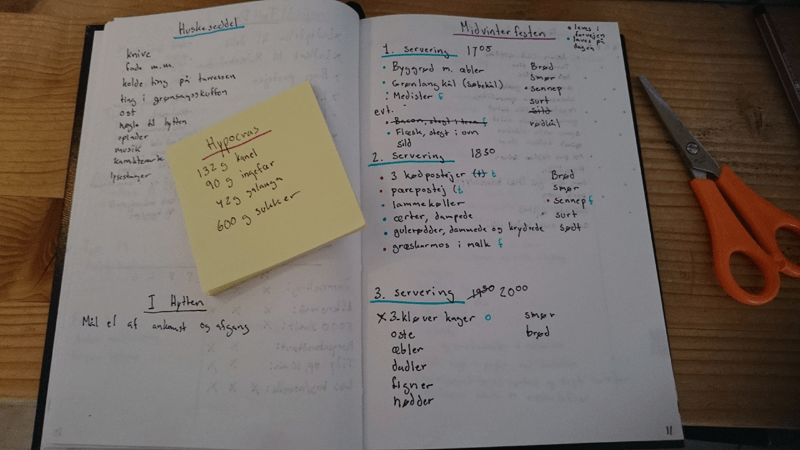 Huskeseddel
knive
fade m.m.
kolde ting på terrassen
ting i grønsagsskuffen
ost
nøgle til hytten
oplader
musik
lysestager
Hypocras
132 g kanel
90 g ingefær
42 g galanga
600 g sukker
I Hytten
Mål el af ankomst og afgang
Midvinterfesten
• laves i forvejen
• laves på dagen
1. servering 1700
• Byggrød m. æbler
• Grønlangkål (søbekål)
: Medister f
evt.
• Bacon, stegt i
• Flæsk, stegt i ovn
sild
Brød
smør
• sennep
surt
sild
rødkål
2. servering 1830
• 3 kødpostejer (t) t
• pærepostej (t
• lammekøller
• ærter, dampede
• gulerødder, dampede og krydrede
• græskarmos i mælk f
Brød
smør
• sennep f
surt
sødt
3. servering 1930 2000
x 3-kløver kager o
oste
æbler
dadler
figner
nødder
smør
brød
11